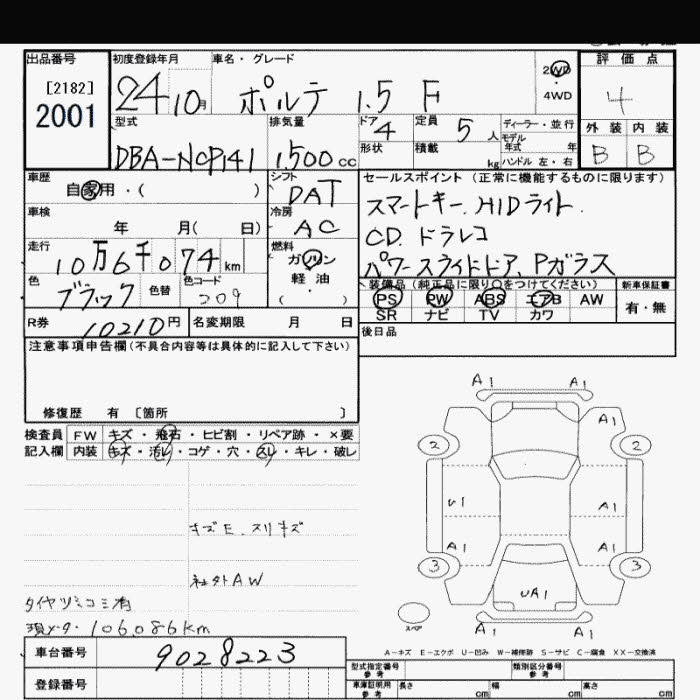 出品番号 初度登録年月 車名・グレード 2WD・4WD 評価点
[2182] 2001 24 10月 ポルテ 1.5 F 4
型式 排気量 ドア 4 定員 5人 ディーラー・並行 外装 内装
形状 積載 kg モデル年式 年 B B
DBA-NCP141 1,500cc ハンドル 左・右
車歴 シフト セールスポイント(正常に機能するものに限ります)
自家用・( ) DAT スマートキー.HIDライト.
車検 冷房 CD.ドラレコ
年 月( 日) AC パワースライドドア、Pガラス
走行 燃料
10万6千074km ガソリン・軽油
( )
色 色替 色コード 装備品(純正品に限り○をつけてください) 新車保証書
ブラック 209 PS PW ABS エアB AW 有・無
SR ナビ TV カワ
R券 10210円 名変期限 月 日 後日品
注意事項申告欄(不具合内容等は具体的に記入して下さい)
修復歴 有 〔箇所 〕
検査員 FW キズ・飛石・ヒビ割・リペア跡・×要
記入欄 内装 キズ・汚レ・コゲ・穴・スレ・キレ・破レ
キズE.スリキズ
社外AW
タイヤツミコミ有
現メータ・106086km
A1 A1
A1
2 2
U1 A1
A1 A1
3 3
UA1
スペア A1 A1
A-キズ E-エクボ U-凹み W-補修跡 S-サビ C-腐食 XX-交換済
車台番号 9028223
登録番号
型式指定番号 参考 類別区分番号 参考
車庫証明用 参考 長さ cm 幅 cm 高さ cm